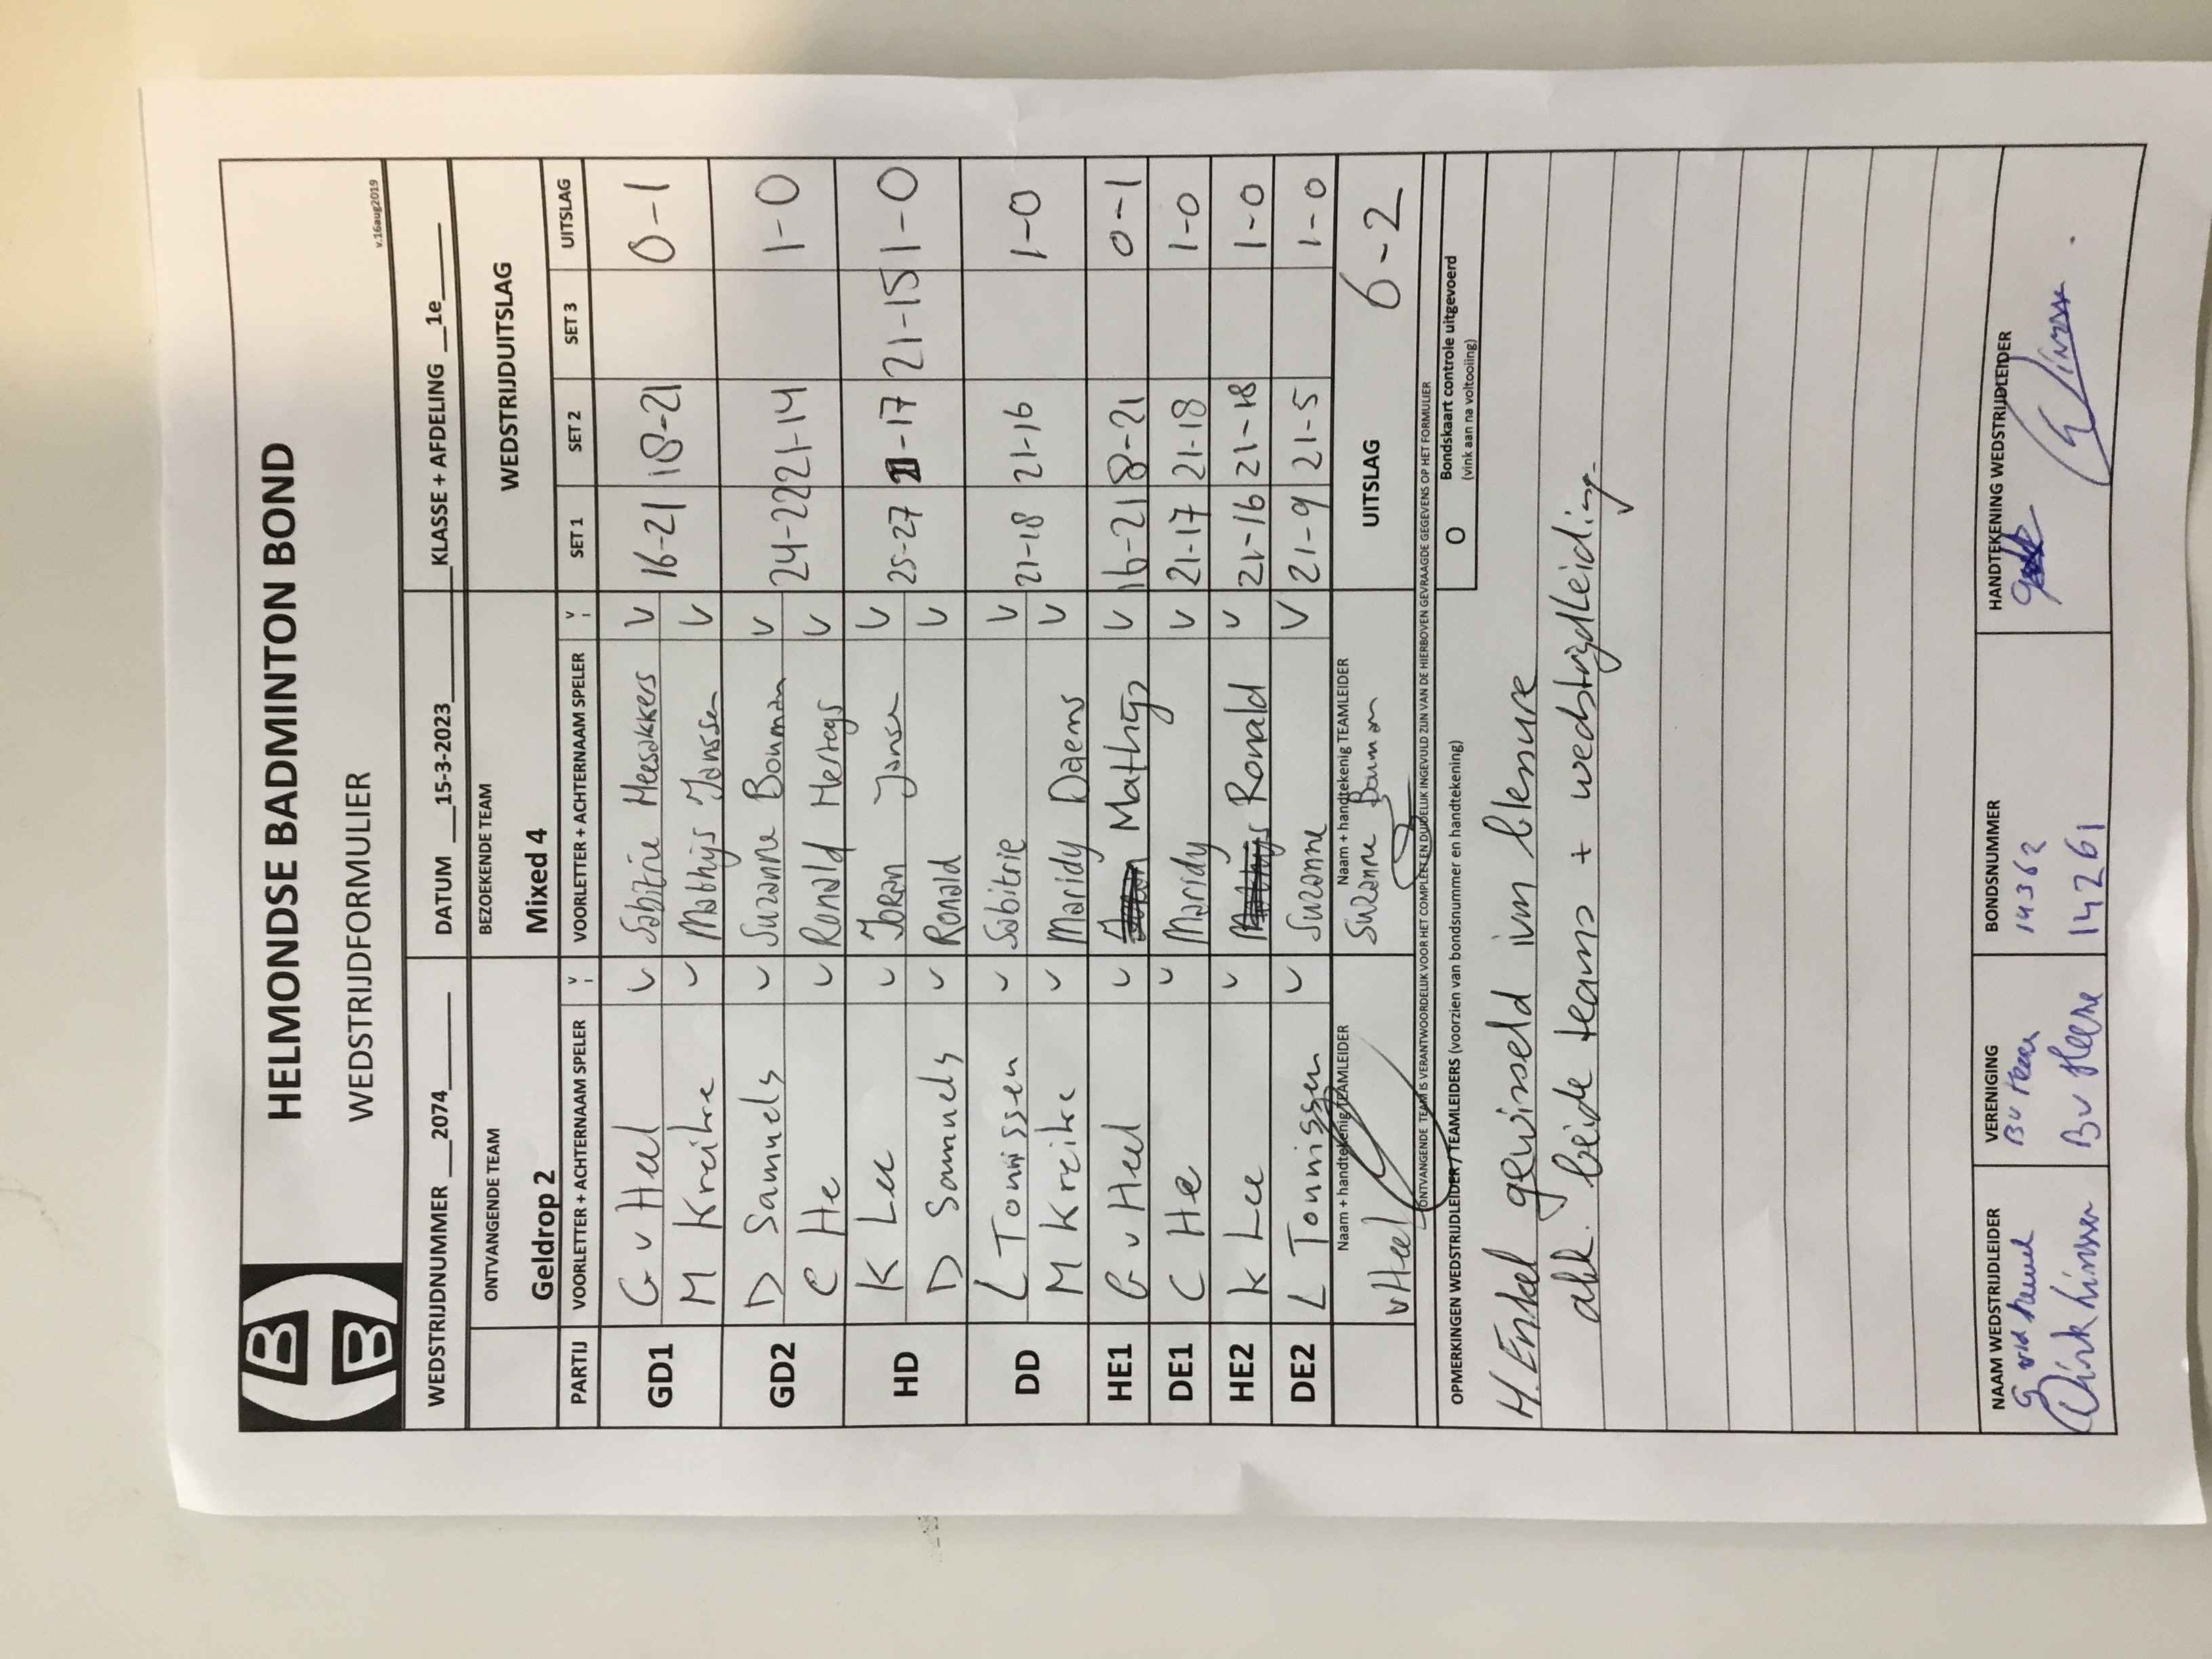 HELMONDSE BADMINTON BOND
WEDSTRIJDFORMULIER
v.16aug2019
WEDSTRIJDNUMMER __2074____ DATUM __15-3-2023____ KLASSE + AFDELING __1e____
ONTVANGENDE TEAM BEZOEKENDE TEAM WEDSTRIJDUITSLAG
Geldrop 2 Mixed 4
PARTIJ VOORLETTER + ACHTERNAAM SPELER V VOORLETTER + ACHTERNAAM SPELER V SET 1 SET 2 SET 3 UITSLAG
GD1 G v Heel V Sabitrie Meesakkers V 16-21 18-21 0-1
M Kreike V Mathijs Janssen V
GD2 D Samuels V Suzanne Bouman V 24-22 21-14 1-0
C He V Ronald Hertogs V
HD K Lee V Joran Jansen V 25-27 21-17 21-15 1-0
D Samuels V Ronald V
DD L Tonnissen V Sabitrie V 21-18 21-16 1-0
M Kreike V Maridy Daems V
HE1 G v Heel V Mathijs V 16-21 18-21 0-1
DE1 C He V Maridy V 21-17 21-18 1-0
HE2 K Lee V Ronald V 21-16 21-18 1-0
DE2 L Tonnissen V Suzanne V 21-9 21-5 1-0
Naam + handtekenig TEAMLEIDER Naam + handtekenig TEAMLEIDER UITSLAG 6-2
vHeel Suzanne Bouman
ONTVANGENDE TEAM IS VERANTWOORDELIJK VOOR HET COMPLEET EN DUIDELIJK INGEVULD ZIJN VAN DE HIERBOVEN GEVRAAGDE GEGEVENS OP HET FORMULIER
OPMERKINGEN WEDSTRIJDLEIDER / TEAMLEIDERS (voorzien van bondsnummer en handtekening) O Bondskaart controle uitgevoerd
(vink aan na voltooiing)
H. Enkel gewisseld ivm blessure
akk. beide teams + wedstrijdleiding.
NAAM WEDSTRIJDLEIDER VERENIGING BONDSNUMMER HANDTEKENING WEDSTRIJDLEIDER
G vd BV 14362
Dirk Linssen BV 14261